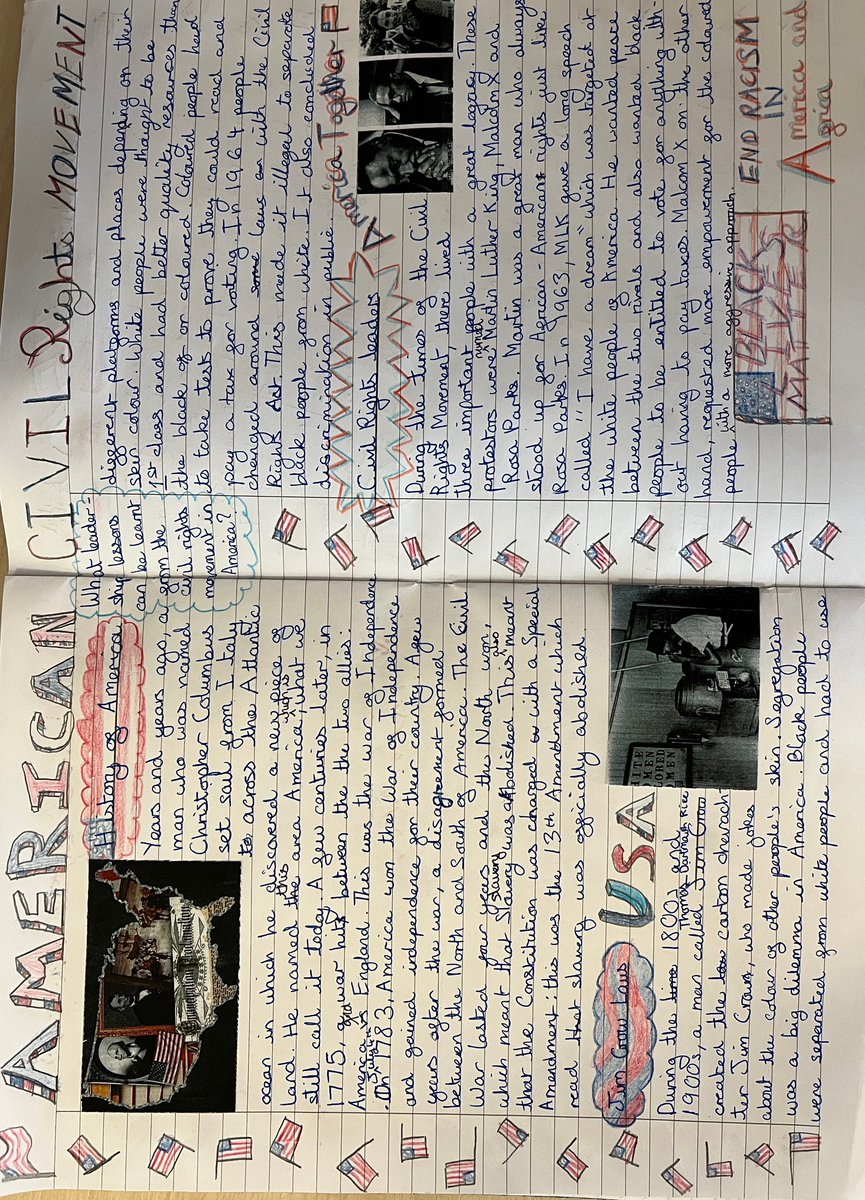 AMERICAN CIVIL Rights MOVEMENT
History of America
Years and years ago, a
man who was named
Christopher Columbus
set sail from Italy
to across the Atlantic
ocean in which he discovered a new piece of
land. He named this the area America, which is what we
still call it today. A few centuries later, in
1775, a war hits between the the two allies:
America and England. This was the war of Independence
. In 1983, America won the War of Independence
and gained independence for their country. A few
years after the war, a disagreement formed
between the North and South of America. The Civil
War lasted four years and the North won,
which meant that slavery was abolished. This also meant
that the Constitution was changed with a Special
Amendment: this was the 13th Amendment which
read that slavery was officially abolished.
Jim Crow Laws
USA
During the time 1800s and
1900s, a man called Jim Crow Thomas Dartmouth Rice
created the law cartoon charach-
ter Jim Crow, who made jokes
about the colour of other people's skin. Segregation
was a big dilemma in America. Black people
were separated from white people and had to use
What leader-
ship lessons
can be learnt
from the
civil rights
movement in
America?
different platforms and places depending on their
skin colour. White people were thought to be
1st class and had better quality resources than
the black of or coloured. Coloured people had
to take test to prove they could read and
pay a tax for voting. In 1964 people
changed around some laws on with the Civil
Rights Act. This made it illegal to separate
black people from white. It also concluded
discrimination in public.
America Together
Civil Rights Leaders
During the times of the Civil
Rights Movement, there lived
three important people with a great legacy. These
protestors were named Martin Luther King, Malcolm X and
Rosa Parks. Martin was a great man who always
stood up for African-American rights just like
Rosa Parks. In 1963, MLK gave a long speech
called "I have a dream" which was targeted at
the white people of America. He wanted peace
between the two rivals and also wanted black
people to be entitled to vote for anything with-
out having to pay taxes. Malcom X on the other
hand, requested more empowerment for the coloured
people with a more aggressive approach.
BLACK
LIVES
MATTER
END RACISM
IN
America and
Africa